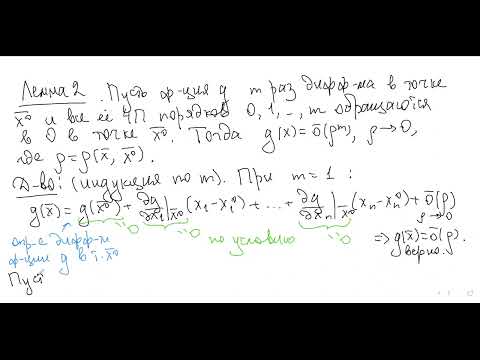 Лемма 2. Пусть ф-ция g m раз дифф-ма в точке
x̄⁰ и все её ЧП порядков 0, 1, .., m обращаются
в 0 в точке x̄⁰. Тогда g(x̄) = ō(ρᵐ), ρ→0,
где ρ = ρ(x̄, x̄⁰).
Д-во: (индукция по m). При m = 1 :
g(x̄) = g(x̄⁰) + ∂g/∂x₁|x̄⁰ (x₁ - x₁⁰) + ... + ∂g/∂xₙ|x̄⁰ (xₙ - xₙ⁰) + ō(ρ) ρ→0
"0 "0 по условию "0 ⇒ g(x̄) = ō(ρ).
верно.
опр-е дифф-ти
ф-ции g в т. x̄⁰
Пуст